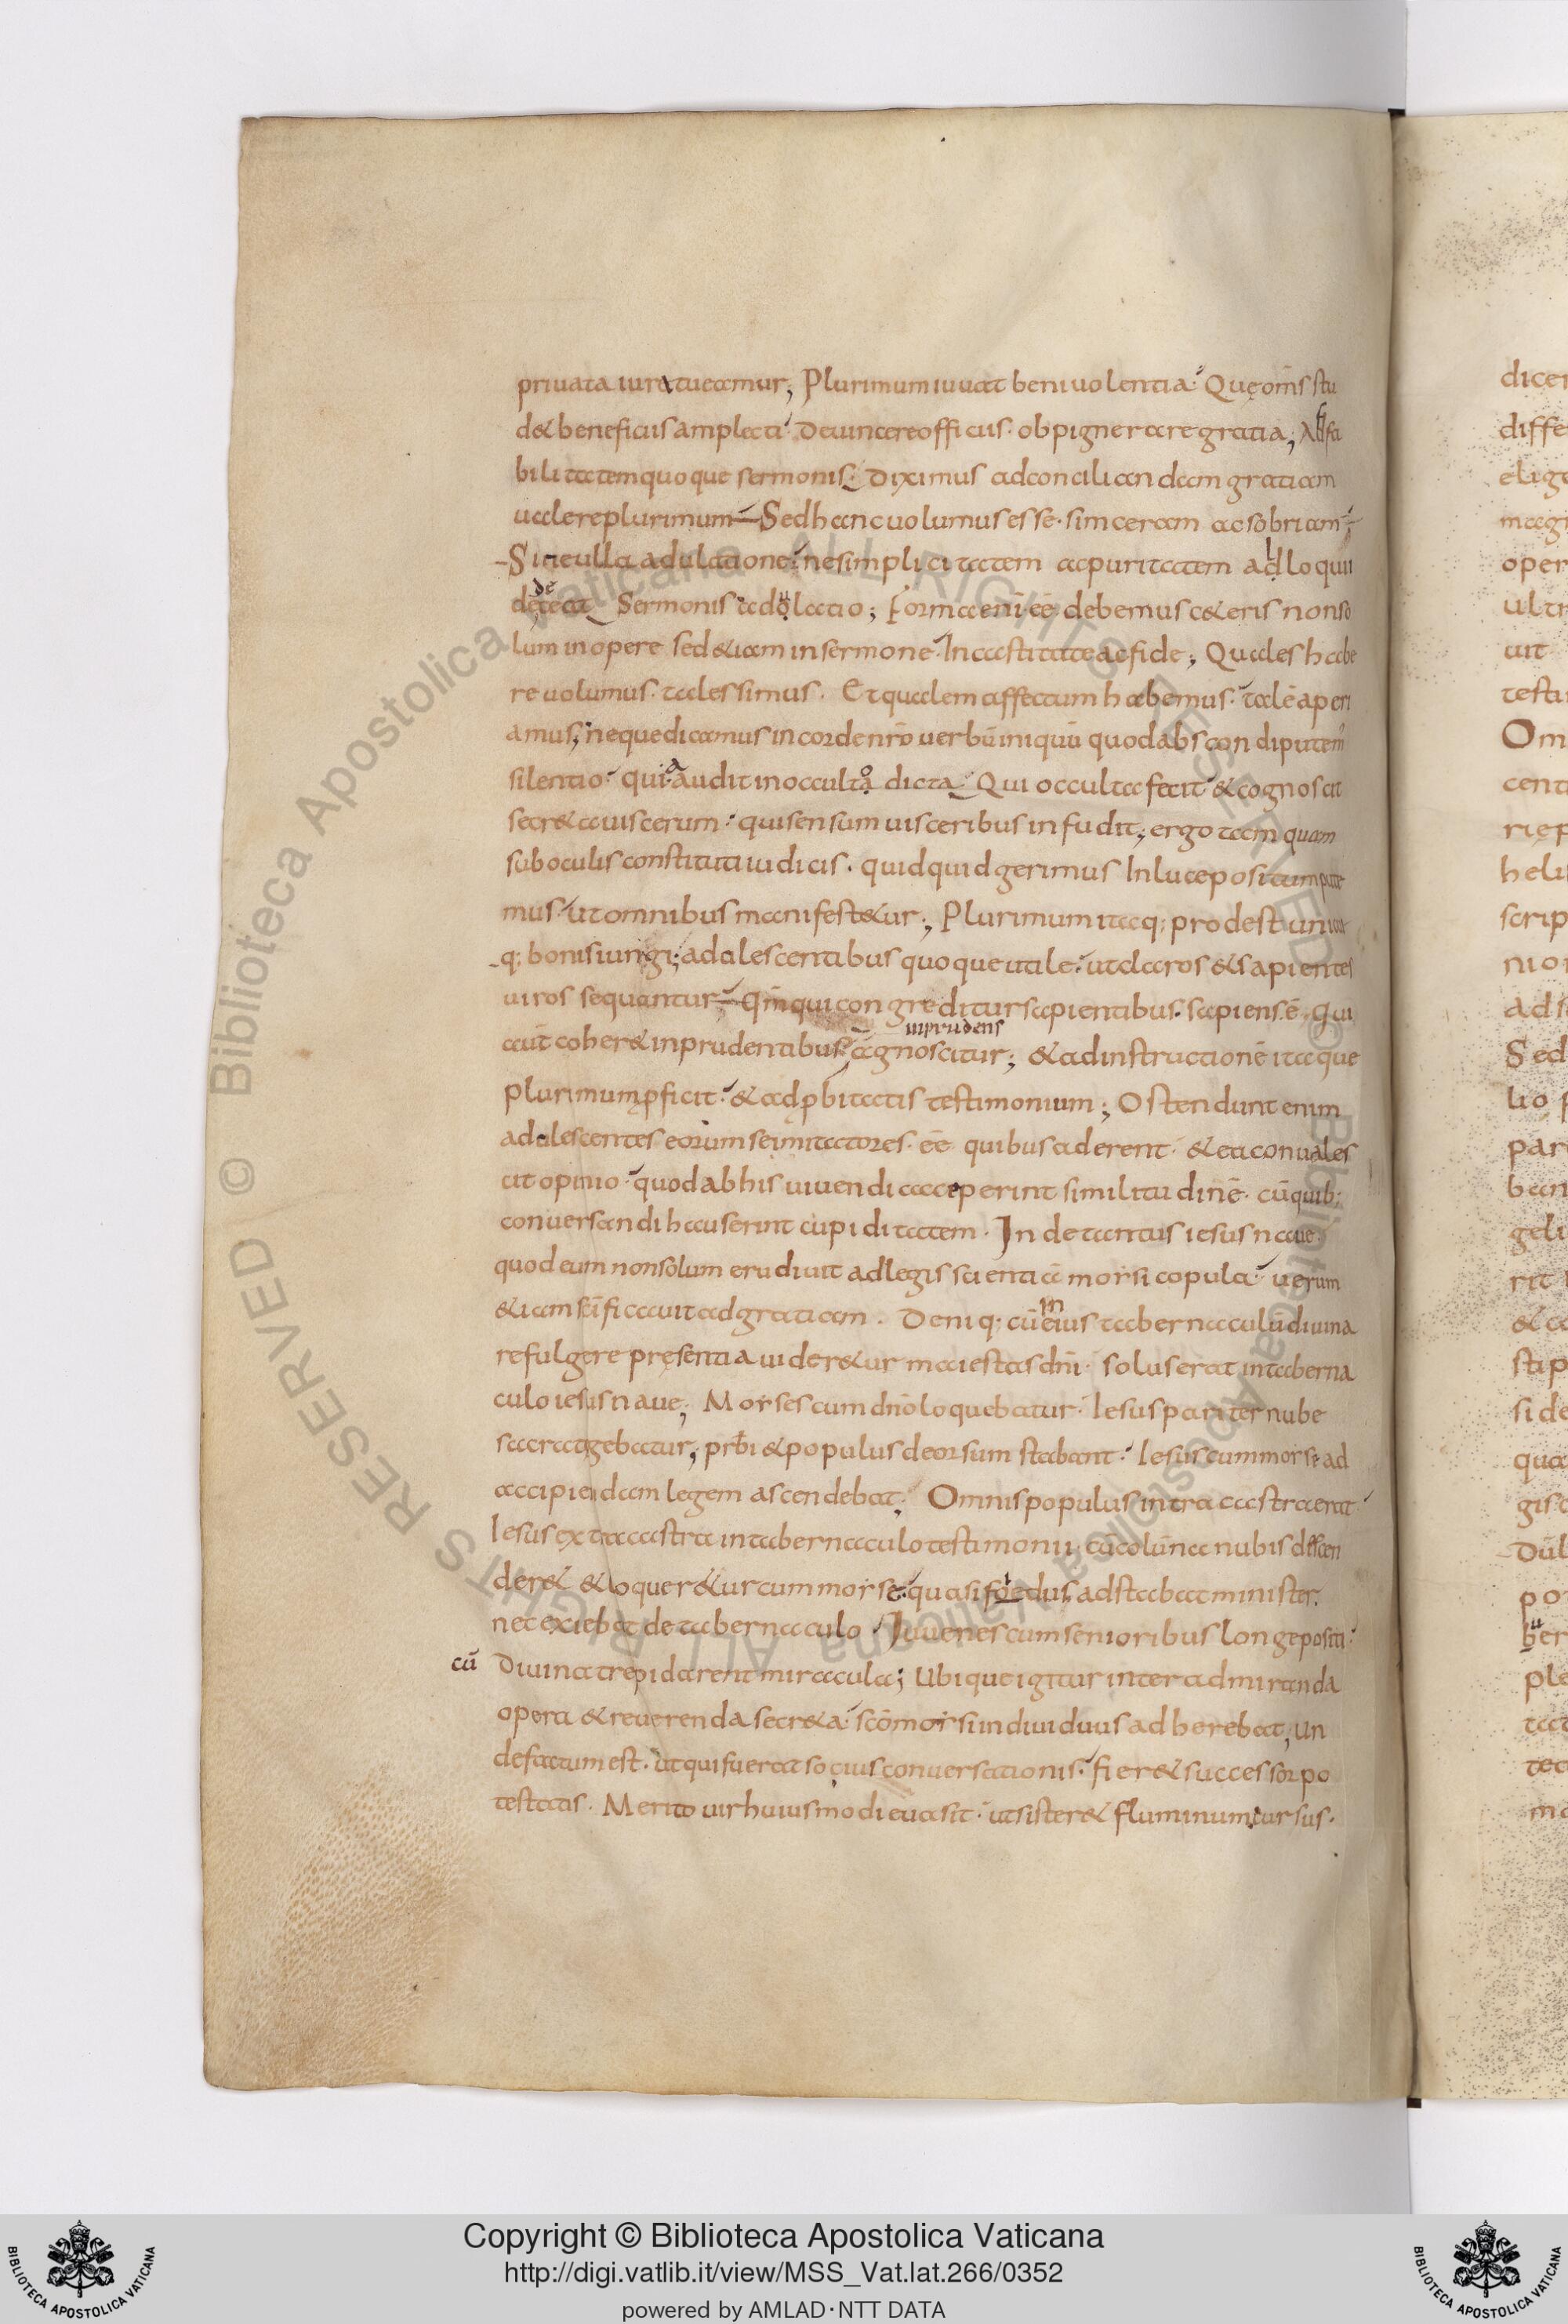 priuata iure tueamur; Plurimum iuuat beniuolentia. Quę om̅s stu
d& beneficiis amplecti. Deuincere officiis. obpignerare gratia; Adfa
bilitatem quoque sermonis. Diximus ad conciliandam gratiam
ualere plurimum Sed hanc uolumus esse. sinceram ac sobriam;
Sine ulla adulatione. ne simplicitatem ac puritatem adloquii
dedeceat Sermonis adolatio; Forma eni̅ ee̅ debemus c&eris non so
lum in opere sed &iam in sermone. In castitate ac fide; Quales habe
re uolumus. tales simus. Et qualem affectum habemus. tale̅ aperi
amus; neque dicamus in corde nr̅o uerbu̅ iniquu̅ quod abscondi putem
silentio. quia audit in occulto dicta. Qui occulta fecit & cognoscit
secr&a uiscerum. qui sensum uisceribus infudit; ergo tam quam
sub oculis constituti iudicis. quidquid gerimus In luce positum pute
mus ut omnibus manifest&ur; Plurimum itaq; prodest unicui
q; bonis iungi; adulescentibus quoque utile. ut claros & sapientes
uiros sequantur Qm̅ qui congreditur sapientibus. sapiens e̅. Qui
imprudens
aut̅ coher& inprudentibus. agnoscitur; & ad instructione̅ itaque
plurimum pficit. & ad pbitatis testimonium; Ostendunt enim
adulescentes eorum se imitatores. ee̅ quibus aderent. & ea conuales
cit opinio. quod ab his uiuendi acceperint similitudine̅. cu̅ quib;
conuersandi hauserint cupiditatem. Inde tantus iesus naue.
quod eum non solum erudiuit ad legis scientia̅ morsi copula. uerum
&iam sc̅ificauit ad gratiam. Deniq; cu̅ in eius tabernaculu̅ diuina
refulgere pręsentia uider&ur maiestas dn̅i. solus erat in taberna
culo iesus naue; Morses cum dn̅o loquebatur. Iesus pariter nube
sacra tegebatur; prb̅i & populus deorsum stabant. Iesus cum morse ad
accipiendam legem ascendebat; Omnis populus intra castra erat.
Iesus extra castra in tabernaculo testimonii; cu̅ colu̅na nubis descen
der& & loquer&ur cum morse. quasi foedus adstabat minister.
nec exiebat de tabernaculo. Iuuenes cum senioribus longe positi.
cu̅ Diuina trepidarent miracula; Ubique igitur inter admiranda
opera & reuerenda secr&a. sc̅o morsi indiuiduus adherebat; Un
de factum est. ut qui fuerat socius conuersationis. fier& successor po
testatis. Merito uir huiusmodi euasit. ut sister& fluminum cursus.
Copyright © Biblioteca Apostolica Vaticana
http://digi.vatlib.it/view/MSS_Vat.lat.266/0352
powered by AMLAD·NTT DATA